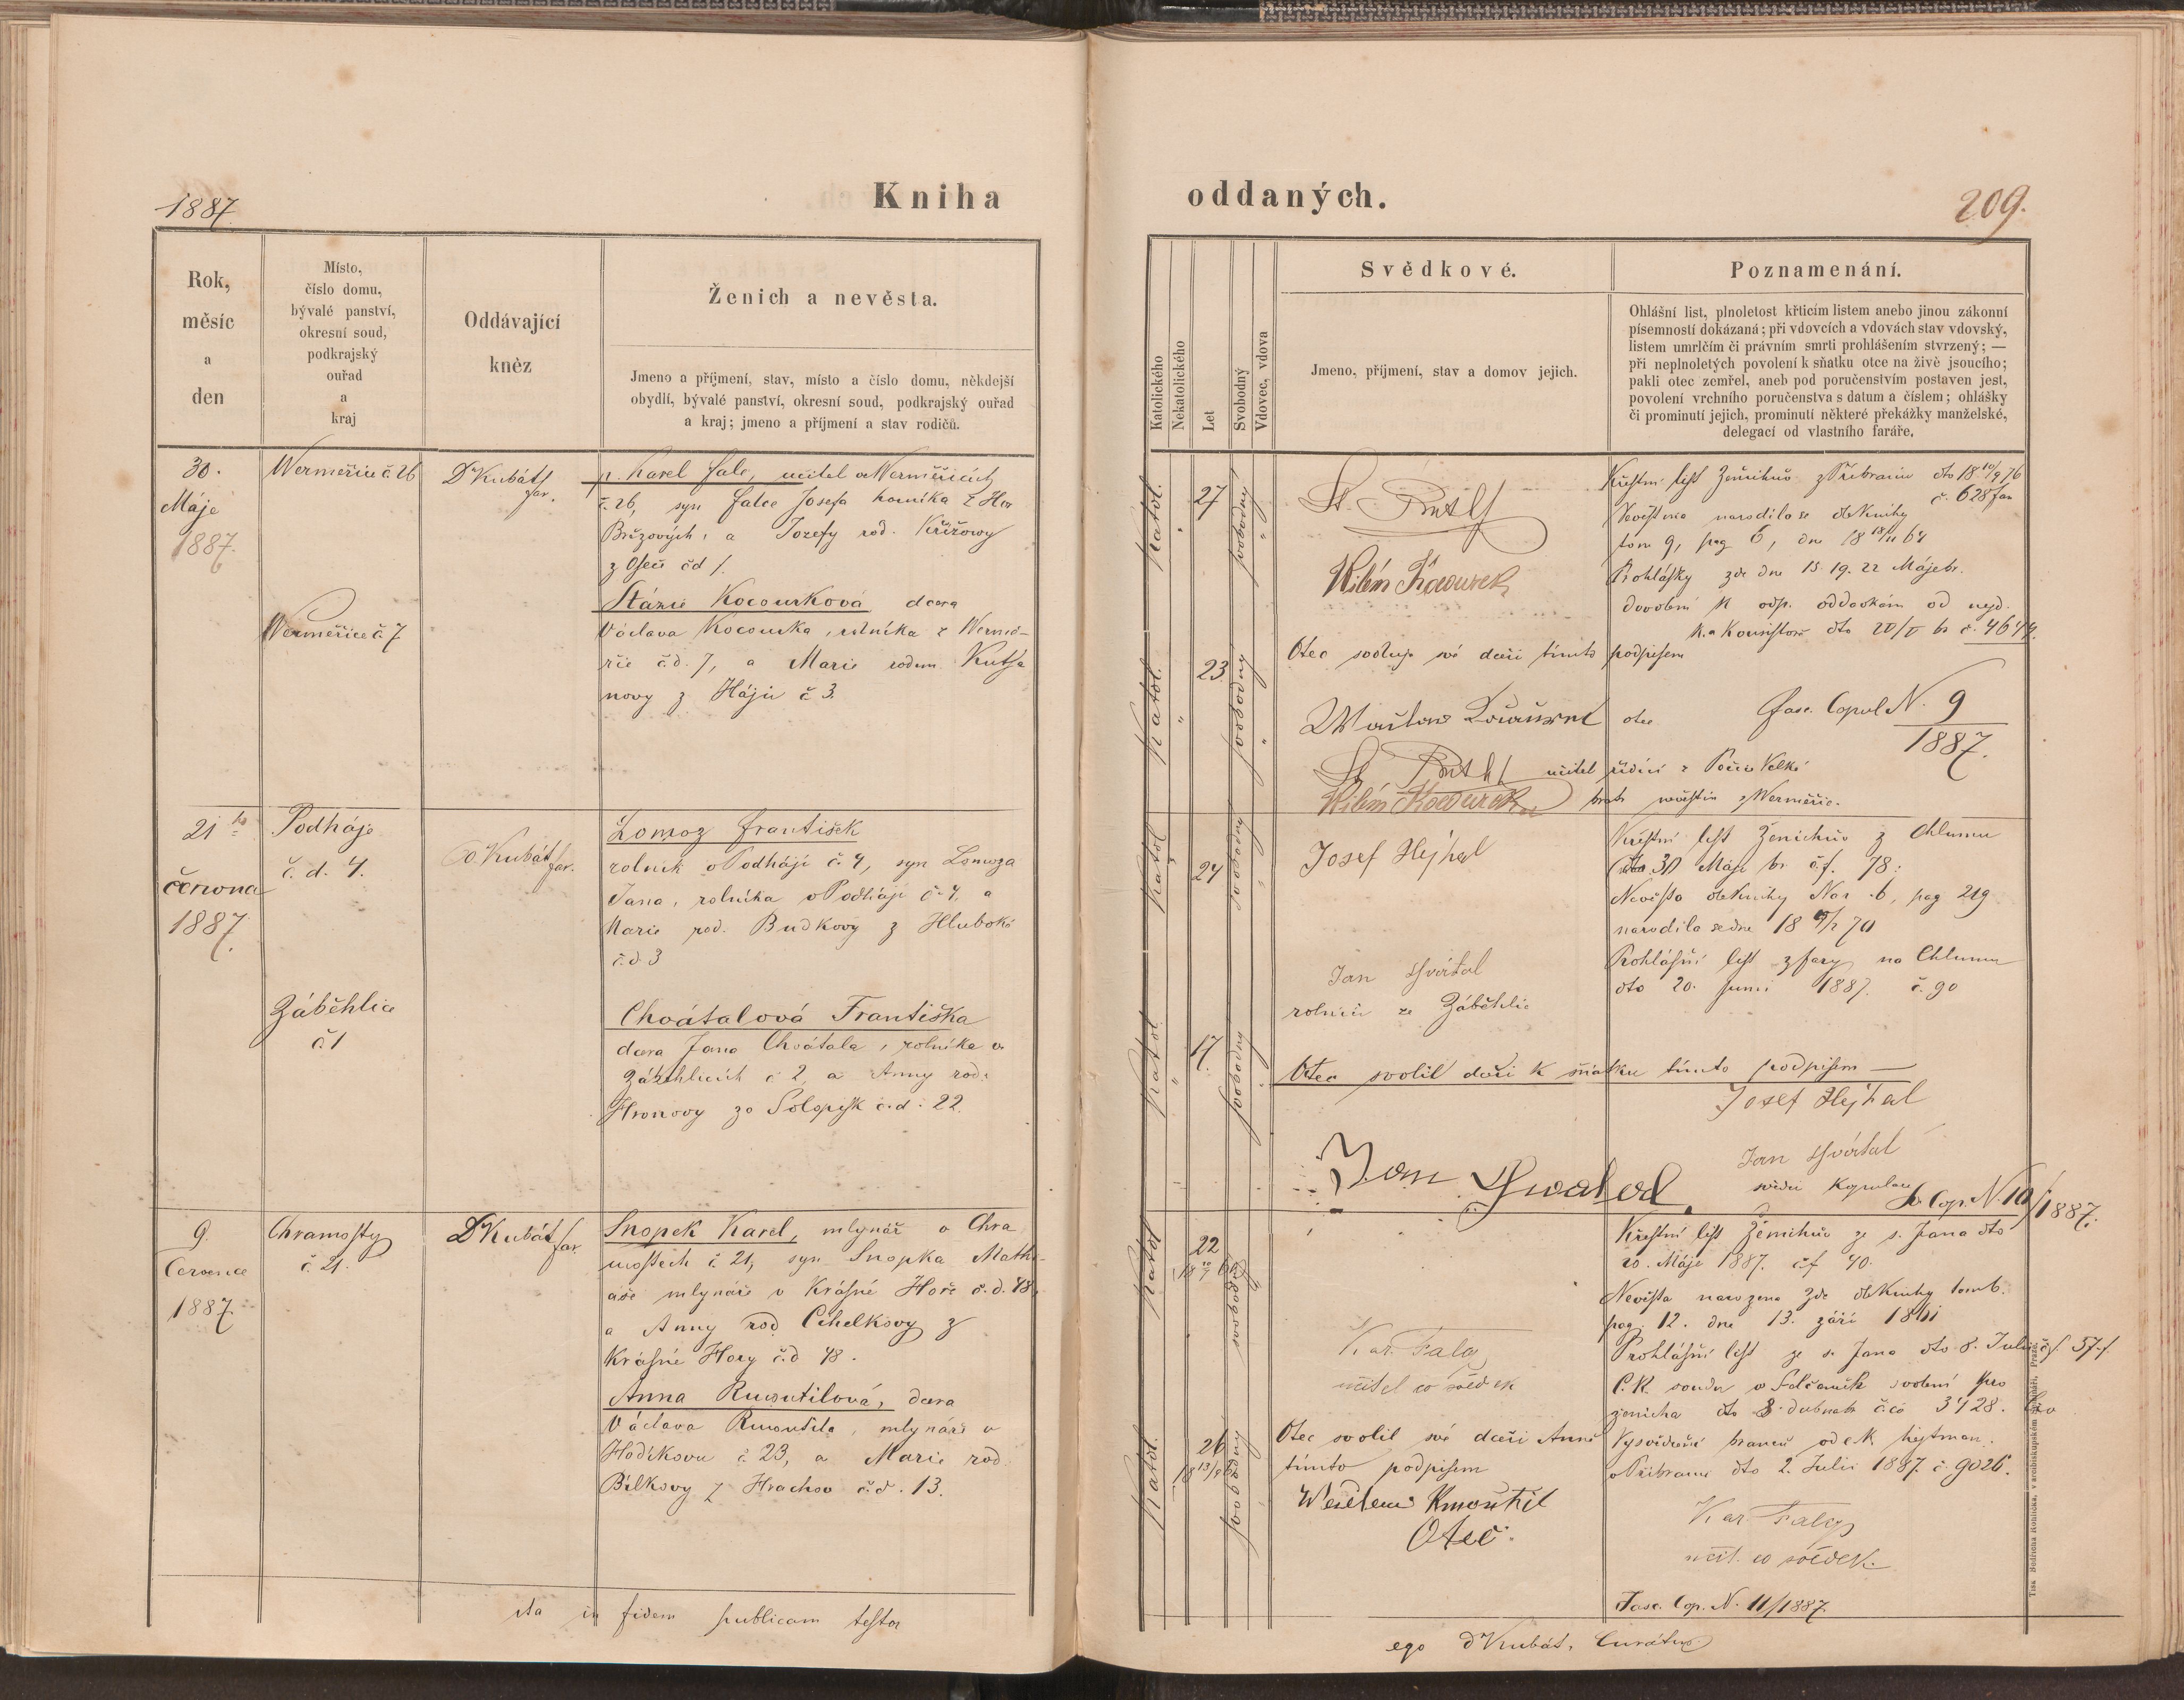 1887.
Kniha
Rok,
měsíc
a
den
Místo,
číslo domu,
bývalé panství,
okresní soud,
podkrajský
ouřad
a
kraj
Oddávající
kněz
Ženich a nevěsta.
Jmeno a příjmení, stav, místo a číslo domu, někdejší
obydlí, bývalé panství, okresní soud, podkrajský ouřad
a kraj; jmeno a příjmení a stav rodičů.
30.
Máje
1887.
Wermeřice č 26
Wermeřice č 7
D Kubát
far.
p. Karel Falc, učitel v Wermeřicích
č. 26, syn Falce Josefa horníka z Hor
Březových, a Josefy rod. Křížowy
z Oseč čd 1.
Stázie Kocourková dcera
Václava Kocourka, rolníka z Werme-
řic č.d. 7, a Marie rodem Kutha
novy z Hájů č 3.
21ho
června
1887.
Podháje
č. d. 4.
Záběhlice
č 1
D. Kubát
far.
Lomoz František
rolník v Podhájí č. 4, syn Lomoza
Jana, rolníka v Podhájí č. 4, a
Marie rod. Budkovy z Hluboké
č.d. 3
Chvátalová Františka
dcera Jana Chvátala, rolníka v
Záběhlicích č 2, a Anny rod.
Hronovy ze Solopisk č.d. 22.
9.
Července
1887.
Chramosty
č. 21.
D Kubát
far.
Snopek Karel, mlynář v Chra
mostech č 21, syn Snopka Mathi-
áše mlynáře v Krásné Hoře č.d. 48,
a Anny rod. Cihelkovy z
Krásné Hory č.d 48.
Anna Kmoutilová, dcera
Václava Kmoutila, mlynáře v
Hodíkovu č 23, a Marie rod
Bílkovy z Hrachov č.d. 13.
ita in fidem publicam testor
oddaných.
209.
Katolického
Nekatolického
Let
Svobodný
Vdovec, vdova
Svědkové.
Jmeno, příjmení, stav a domov jejich.
Poznamenání.
Ohlášní list, plnoletost křticím listem anebo jinou zákonní
písemností dokázaná; při vdovcích a vdovách stav vdovský,
listem umrlčím či právním smrti prohlášením stvrzený; —
při neplnoletých povolení k sňatku otce na živě jsoucího;
pakli otec zemřel, aneb pod poručenstvím postaven jest,
povolení vrchního poručenstva s datum a číslem; ohlášky
či prominutí jejich, prominutí některé překážky manželské,
delegací od vlastního faráře.
katol.
27
svobodný
Vilém Kocourek
Křestní list Ženichův z Příbrami dto 18 10/9 76
č. 628 fan
Nevěsta narodila se dle knihy
tom 9, pag 6, dne 18 18/11 64
Prohlášky zde dne 15. 19. 22 Máje br.
dovolení k odp. oddavkám od nejd.
k. a Konsistoře dto 20/V br č. 4644.
katol.
23
svobodný
Otec svoluje své dceři tímto podpisem
otec
Fasc. Copul N. 9
1887.
učitel řídící z Počic Velké
Vilém Kocourek
bratr nevěstin z Wermeřic.
katol
24
svobodný
Josef Hejhal
Křestní list Ženichův z Chlumu
dto 30 Máje br. č.f. 78.
Nevěsta dle knihy Nar. 6, pag 219
narodila se dne 18 70
Prohlášní list z fary na Chlumu
dto 20. Juni 1887. č. 90
Jan Hvátal
rolník ze Záběhlic
katol
17.
svobodný
Otec svolil dceři k sňatku tímto podpisem —
Josef Hejhal
Jan Hvátal
svědci kopulace
Fs. Cop. N. 10/1887.
katol
22
svobodný
Křestní list Ženichův ze s. Jana dto
20. Máje 1887. č.f 40.
Nevěsta narozena zde dle knihy tom 6.
pag. 12. dne 13. září 1861
Prohlášní list ze s. Jana dto 8. Juli čs. 57.f.
C.K. soudu v Selčanech svolení pro
ženicha dto 8. dubna br. č.co 3428. Civ
Kar. Falc
učitel co svědek
katol.
26
18 13/9 61
svobodný
Otec svolil své dceři Anně
tímto podpisem
Kmoutil
Otec.
Vysvědčení branců od c k hejtman.
v Příbrami dto 2. Julii 1887. č. 9026.
Kar Falc
učit. co svědek.
Fasc. Cop. N. 11/1887.
ego D Kubát, Curátus